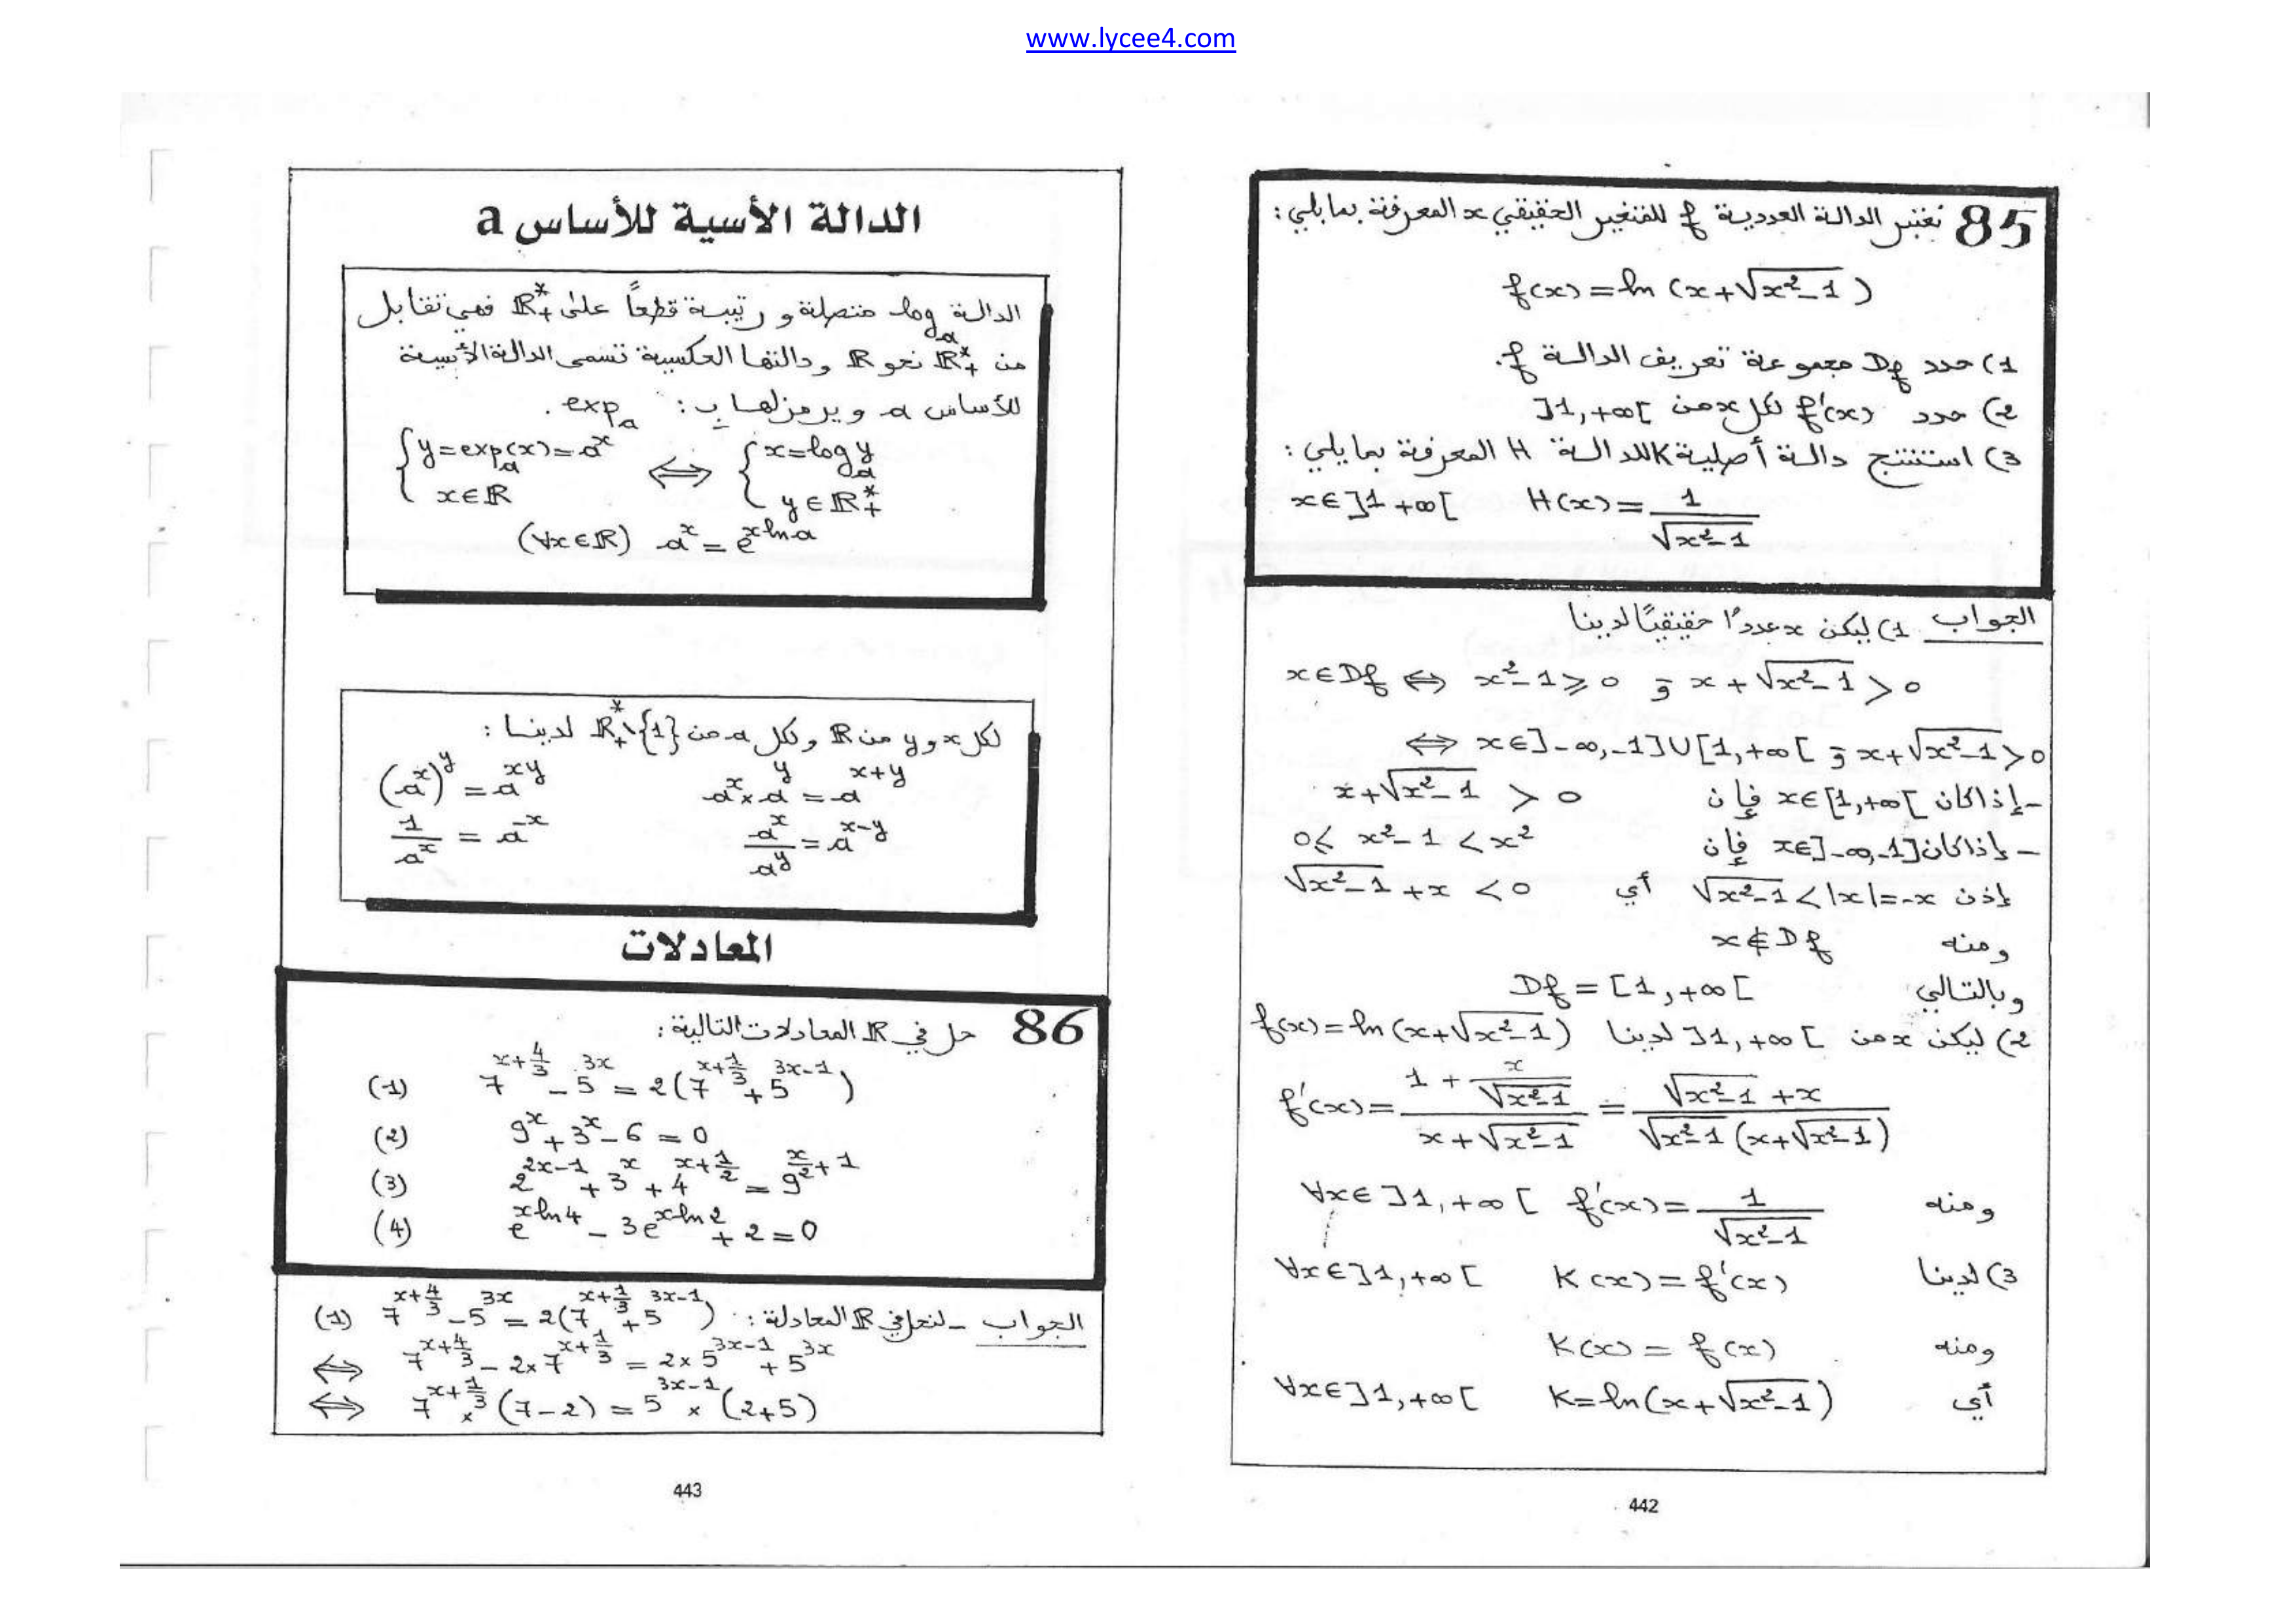 www.lycee4.com
85 نعتبر الدالة العددية f للمتغير الحقيقي x المعرفة بما يلي :
f(x) = ln (x+√(x²-1))
1) حدد Df مجموعة تعريف الدالة f.
2) حدد f'(x) لكل x من ]1,+∞[
3) استنتج دالة أصلية K للدالة H المعرفة بما يلي :
x∈]1 +∞[ H(x) = 1/√(x²-1)
الجواب 1) ليكن x عددًا حقيقيًا لدينا
x∈Df ⇔ x²-1 ⩾ 0 و x+√(x²-1) > 0
⇔ x∈]-∞,-1]∪[1,+∞[ و x+√(x²-1) > 0
- إذا كان x∈[1,+∞[ فإن x+√(x²-1) > 0
- إذا كان x∈]-∞,-1] فإن 0 ⩽ x²-1 < x²
إذن √(x²-1) < |x| = -x أي √(x²-1)+x < 0
ومنه x∉Df
وبالتالي Df = [1,+∞[
2) ليكن x من ]1,+∞[ لدينا f(x) = ln (x+√(x²-1))
f'(x) = (1 + x/√(x²-1))/(x+√(x²-1)) = (√(x²-1)+x)/(√(x²-1)(x+√(x²-1)))
ومنه ∀x∈]1,+∞[ f'(x) = 1/√(x²-1)
3) لدينا ∀x∈]1,+∞[ K(x) = f'(x)
ومنه K(x) = f(x)
أي ∀x∈]1,+∞[ K = ln(x+√(x²-1))
442
الدالة الأسية للأساس a
الدالة logₐ متصلة و رتيبة قطعاً على ℝ*₊ فهي تقابل
من ℝ*₊ نحو ℝ ودالتها العكسية تسمى الدالة الأسية
للأساس a ويرمز لها بـ : expₐ .
{ y = expₐ(x) = a^x ⇔ { x = logₐ y
x∈ℝ y∈ℝ*₊
(∀x∈ℝ) a^x = e^(x ln a)
لكل x و y من ℝ ولكل a من ℝ*₊\{1} لدينا :
(a^x)^y = a^(xy) a^x × a^y = a^(x+y)
1/a^x = a^(-x) a^x/a^y = a^(x-y)
المعادلات
86 حل في ℝ المعادلات التالية :
(1) 7^(x+4/3) - 5^(3x) = 2(7^(x+1/3) + 5^(3x-1))
(2) 9^x + 3^x - 6 = 0
(3) 2^(2x-1) + 3^x + 4^(x+1/2) = 9^(x/2+1)
(4) e^(x ln 4) - 3e^(x ln 2) + 2 = 0
الجواب - لنحل في ℝ المعادلة : (1) 7^(x+4/3) - 5^(3x) = 2(7^(x+1/3) + 5^(3x-1))
⇔ 7^(x+4/3) - 2×7^(x+1/3) = 2×5^(3x-1) + 5^(3x)
⇔ 7^(x+1/3) × (7-2) = 5^(3x-1) × (2+5)
443